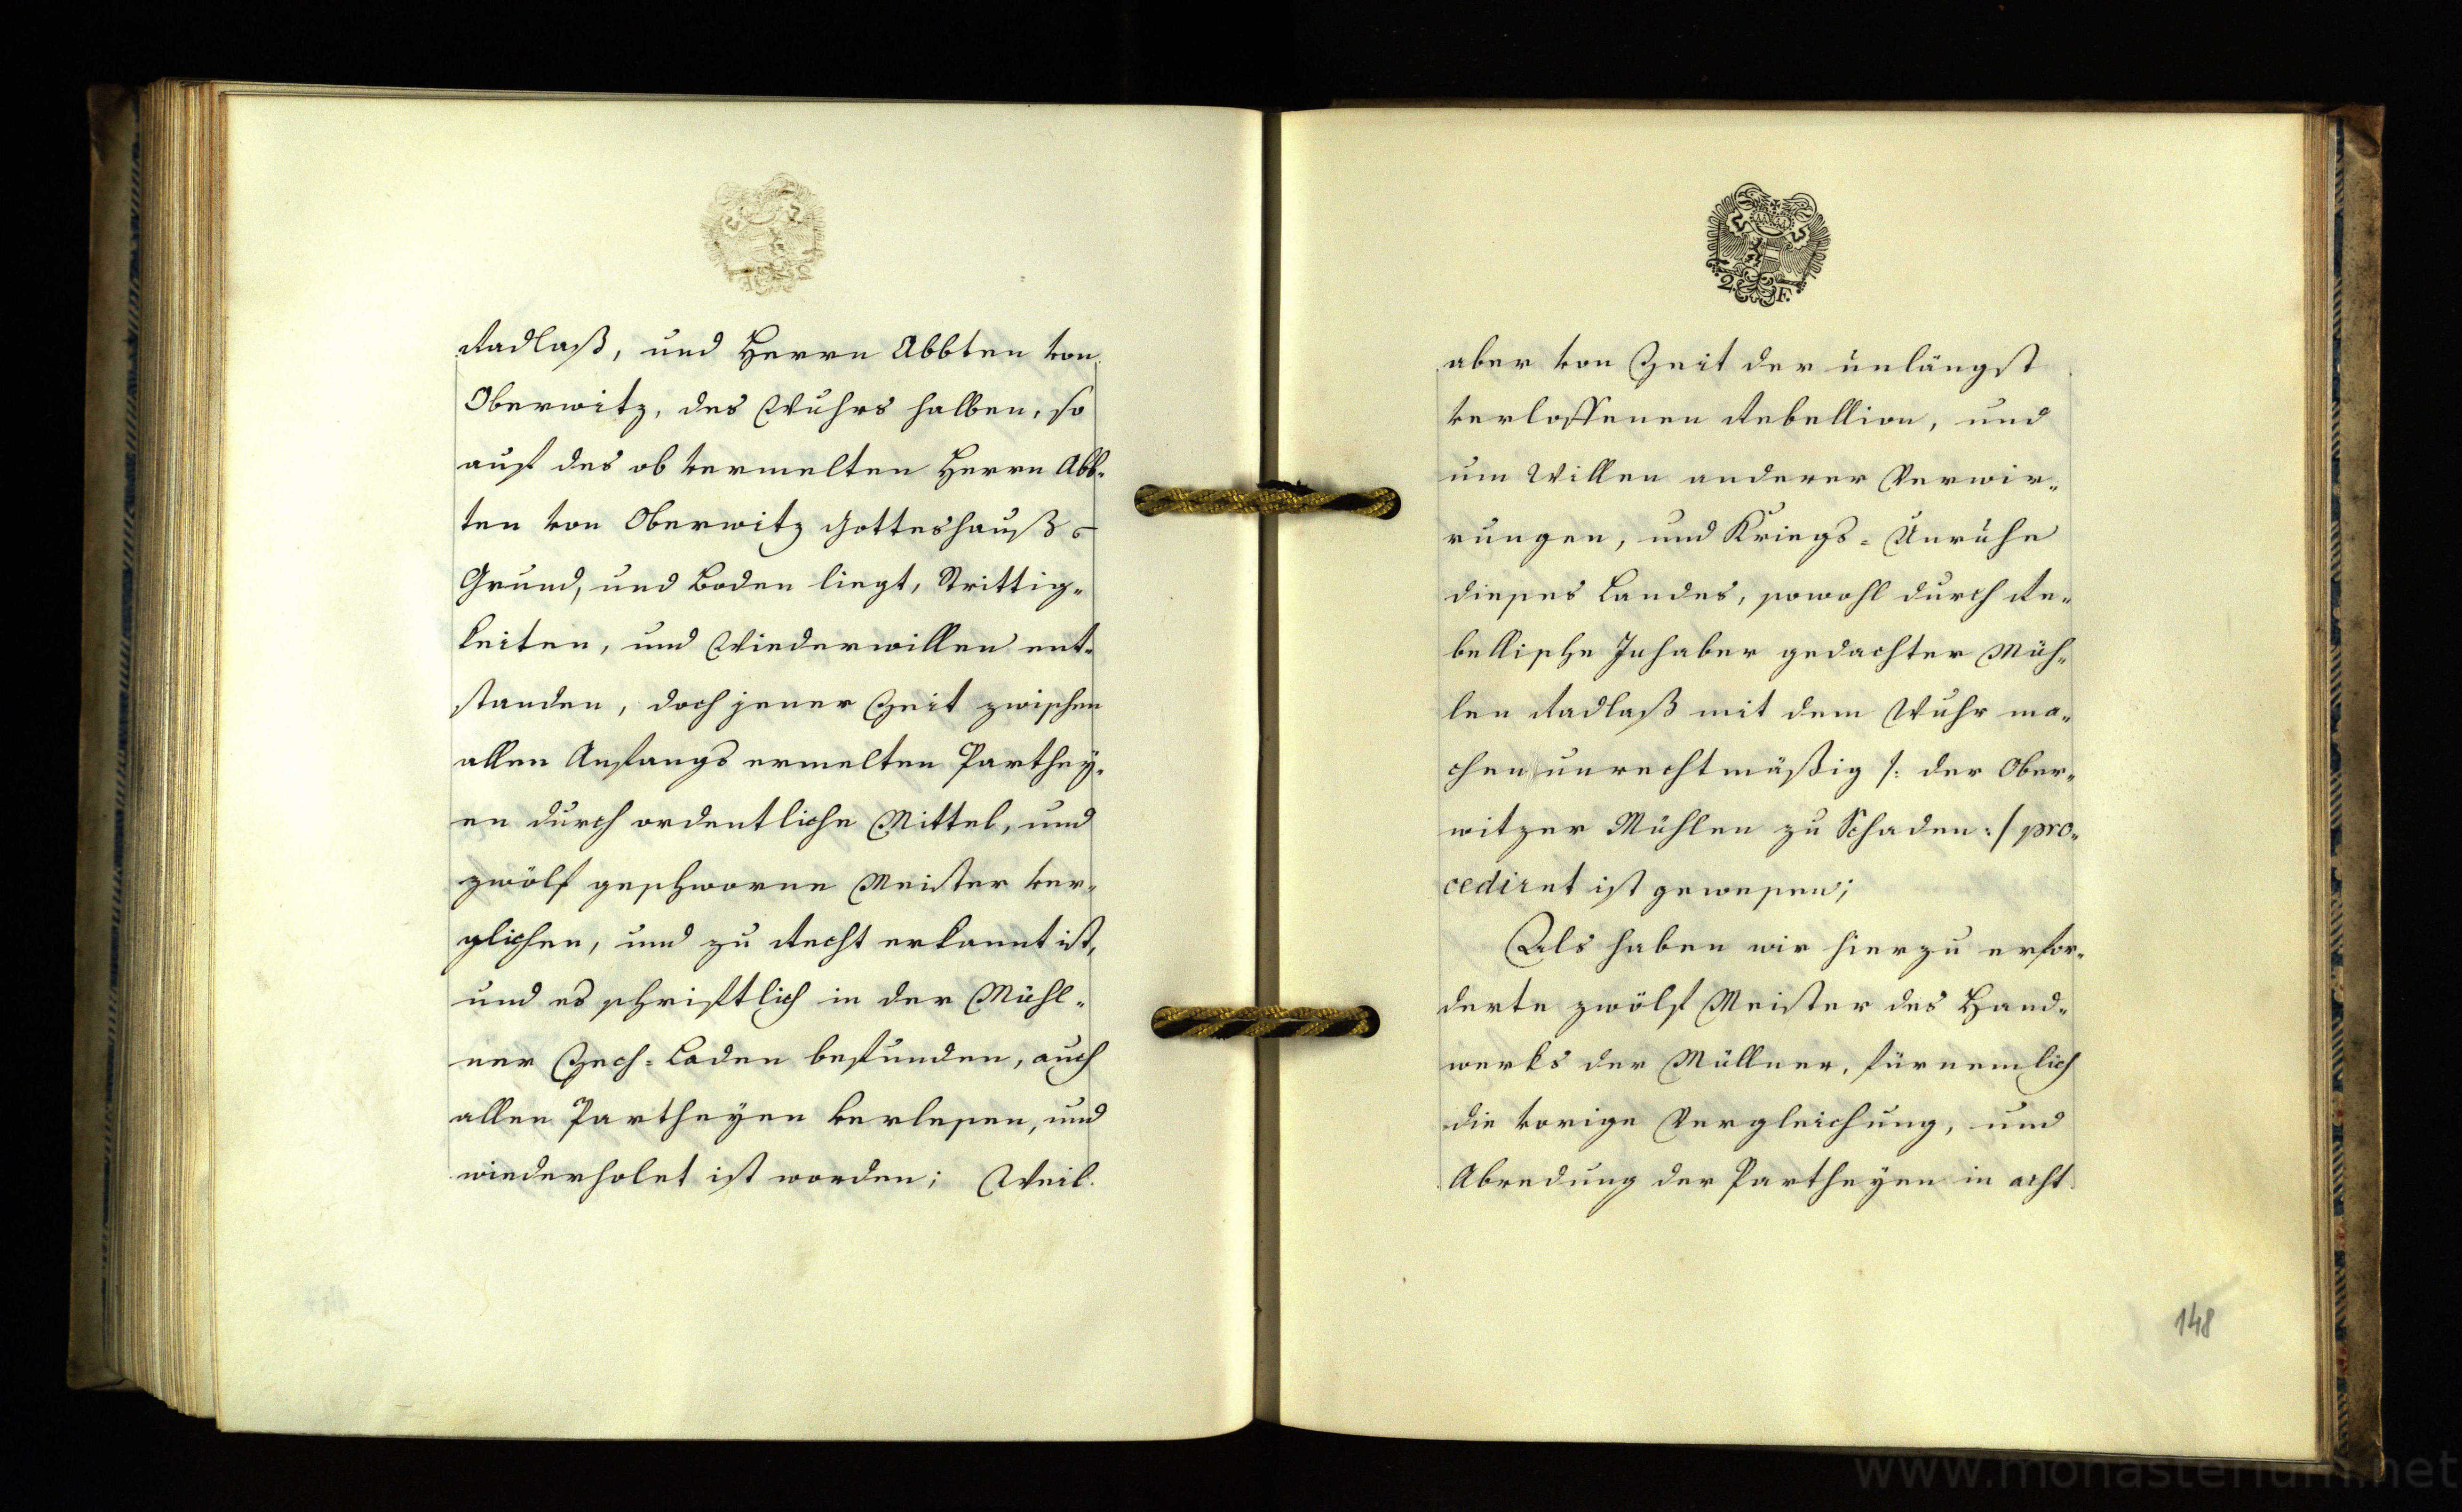 Radlaß, und Herrn Abbten von
Oberwitz, des Wuhrs halben, so
auf des ob vermelten Herrn Abb-
ten von Oberwitz Gotteshauß-
Grund, und Boden liegt, Strittig-
keiten, und Wiederwillen ent-
standen, doch jener Zeit zwischen
allen Anfangs ermelten Parthey-
en durch ordentliche Mittel, und
zwölf geschworne Meister ver-
glichen, und zu Recht erkannt ist,
und es schriftlich in der Mühl-
ner Zech-Laden befunden, auch
allen Partheyen verlesen, und
wiederholet ist worden; Weil
2 F.
aber von Zeit der unlängst
verloffenen Rebellion, und
um Willen anderer Verwir-
rungen, und Kriegs-Unruhe
dieses Landes, sowohl durch Re-
bellische Inhaber gedachter Müh-
len Radlaß mit dem Wuhr ma-
chen unrechtmäßig /: der Ober-
witzer Mühlen zu Schaden :/ pro-
cediret ist gewesen;
Als haben wir hierzu erfor-
derte zwölf Meister des Hand-
werks der Müllner, fürnemlich
die vorige Vergleichung, und
Abredung der Partheyen in acht
148
www.monasterium.net